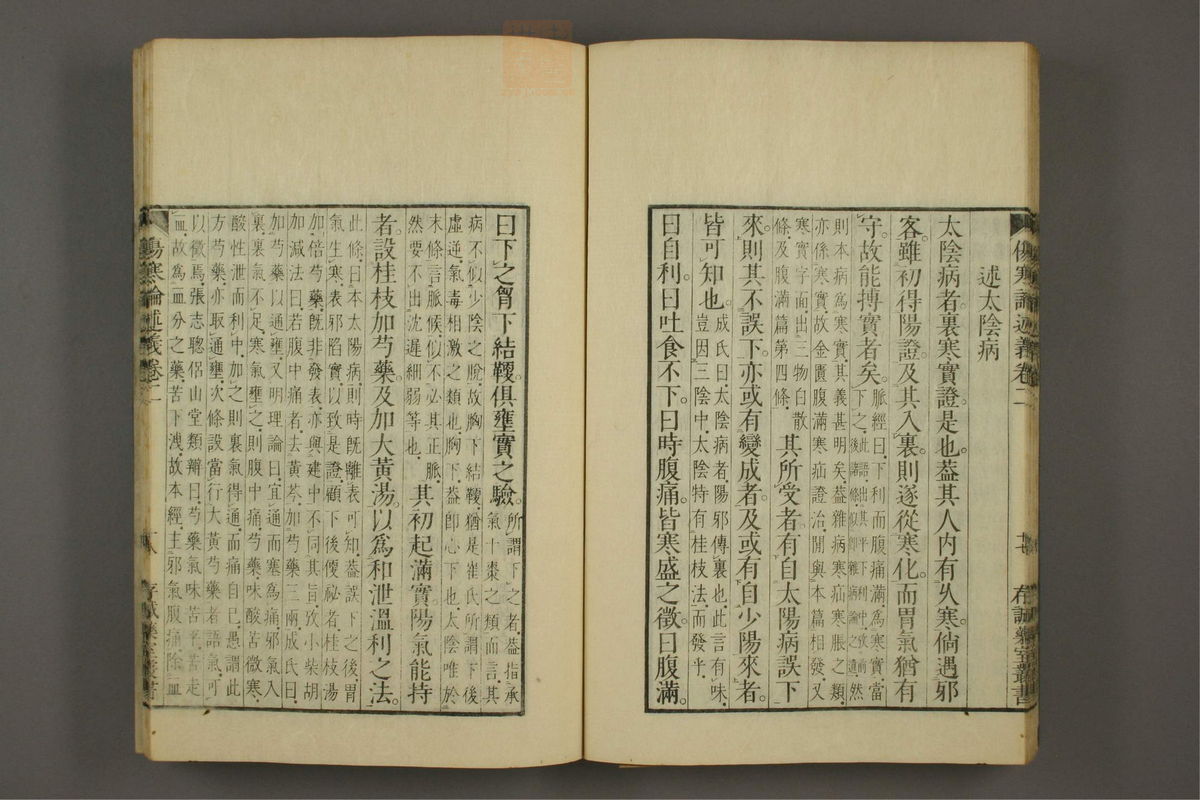 傷寒論述義卷二　十七　存誠藥室叢書
述太陰病
太陰病者。裏寒實證是也。葢其人内有久寒。倘遇邪
客。雖初得陽證。及其入裏。則遂從寒化。而胃氣猶有
守。故能搏實者矣。脈經曰。下利而腹痛滿。爲寒實。當
下之。此語出其平下利中。攷前後諸條。似卽雜病論之遺。然
則本病爲寒實。其義甚明矣。葢雜病寒疝寒脹之類。
亦係寒實。故金匱腹滿寒疝證治。閒與本篇相發。又
寒實字面。出三物白散
條。及腹滿篇第四條。
其所受者。有自太陽病誤下
來。則其不誤下。亦或有變成者。及或有自少陽來者。
皆可知也。成氏曰。太陰病者。陽邪傳裏也。此言有味。
豈因三陰中。太陰特有桂枝法。而發乎。
曰自利。曰吐食不下。曰時腹痛。皆寒盛之徵。曰腹滿。
曰下之胷下結鞕。俱壅實之驗。所謂下之者。葢指承
氣十棗之類而言。其
病不似少陰之脫。故胸下結鞕。猶是崔氏所謂下後
虛逆。氣毒相激之類也。胸下。葢卽心下也。太陰唯於
末條言脈候。似不必其正脈。
然要不出沈遲細弱等也。
其初起滿實。陽氣能持
者。設桂枝加芍藥。及加大黃湯。以爲和泄溫利之法。
此條。曰本太陽病。則時旣離表可知。葢誤下之後。胃
氣生寒。表邪陷實。以致是證。顧下後倐祕者。桂枝湯
加倍芍藥。旣非發表。亦與建中不同其旨。攷小柴胡
加減法曰。若腹中痛者。去黃芩。加芍藥三兩。成氏曰。
加芍藥以通壅。又明理論曰。宜通而塞爲痛。邪氣入
裏。裏氣不足。寒氣壅之。則腹中痛。芍藥味酸苦微寒。
酸性泄而利中。加之則裏氣得通。而痛自已。愚謂此
方芍藥。亦取通壅。次條設當行大黃芍藥者語氣。可
以徵焉。張志聰侶山堂類辯曰。芍藥氣味苦平。苦走
血。故爲血分之藥。苦下洩。故本經主邪氣腹痛。除血
傷寒論述義卷二　十八　存誠藥室叢書